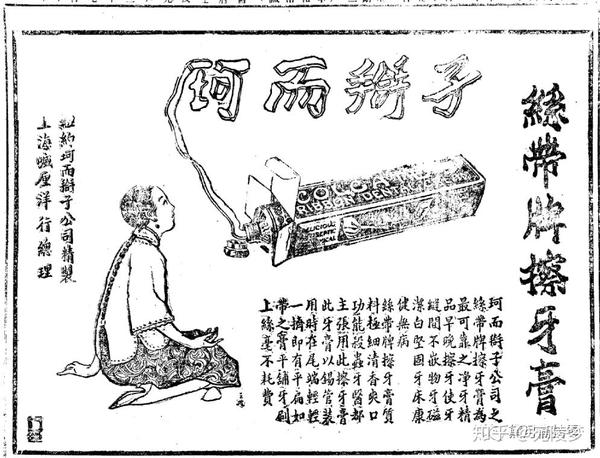 珂而辦子
絲帶牌擦牙膏
RIBBON
DELICIOUS
珂而辦子公司之
絲帶牌擦牙膏為
最可靠之净牙精
品早晚擦牙使牙
縫間不嵌物牙磁
潔白堅固牙床康
健無病
絲帶牌擦牙膏質
料極細清香爽口
功能殺蟲牙醫都
主張用此擦牙膏
此牙膏以錫管裝
用時在尾端輕輕
一擠即有平扁如
帶之膏平鋪牙刷
上絲毫不耗費
紐約珂而辦子公司精裝
上海厘洋行總理
知乎